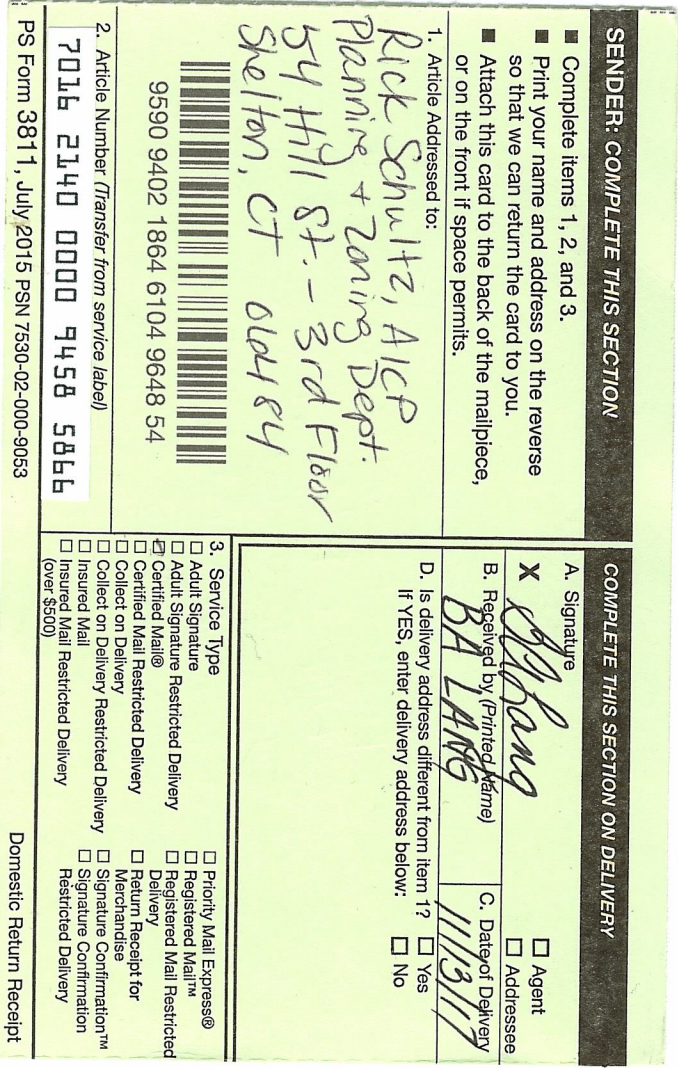 SENDER: COMPLETE THIS SECTION
■ Complete items 1, 2, and 3.
■ Print your name and address on the reverse
so that we can return the card to you.
■ Attach this card to the back of the mailpiece,
or on the front if space permits.
1. Article Addressed to:
Rick Schultz, AICP
Planning + Zoning Dept.
54 Hill St. - 3rd Floor
Shelton, CT 06484
9590 9402 1864 6104 9648 54
2. Article Number (Transfer from service label)
7016 2140 0000 9458 5866
PS Form 3811, July 2015 PSN 7530-02-000-9053
COMPLETE THIS SECTION ON DELIVERY
A. Signature
X
Lang
☐ Agent
☐ Addressee
B. Received by (Printed Name)
BA LANG
C. Date of Delivery
11/13/17
D. Is delivery address different from item 1? ☐ Yes
If YES, enter delivery address below: ☐ No
3. Service Type
☐ Adult Signature
☐ Adult Signature Restricted Delivery
☑ Certified Mail®
☐ Certified Mail Restricted Delivery
☐ Collect on Delivery
☐ Collect on Delivery Restricted Delivery
☐ Insured Mail
☐ Insured Mail Restricted Delivery
(over $500)
☐ Priority Mail Express®
☐ Registered Mail™
☐ Registered Mail Restricted
Delivery
☐ Return Receipt for
Merchandise
☐ Signature Confirmation™
☐ Signature Confirmation
Restricted Delivery
Domestic Return Receipt